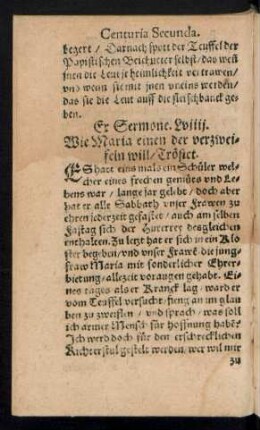 Centuria Secunda.
hezert / Darnach spott der Teuffel der
Papistischen Beichtueter selbst / das wenn
jnen die Leut je heimlichkeit vertrawen /
vnd wenn sie mit jnen vneins werden /
das sie die Leut auff die fleischbanck ge
ben.
Ex Sermone. Lviiij.
Wie Maria einen der verzwei-
feln will / Tröstet.
ES hatt eins mals ein Schüler wel-
cher eines frechen gemüts vnd Le-
bens war / lange jar gelebt / doch aber
hat er alle Sabbath vnser Frawen zu
ehren jederzeit gefastet / auch am selben
Fasttag sich der Hurerrey desgleichen
enthalten. Zu letzt hat er sich in ein Klo
ster begeben / vnd vnser Frawe die jung-
fraw Maria mit sonderlicher Ehrer-
bietung / allezeit vor augen gehabt. Ei-
nes tages als er Kranck lag / ward er
vom Teuffel versucht / fieng an im glau
ben zu zweiflen / vnd sprach / was soll
ich armer Mensch für hoffnung habē?
Ich werd doch für den erschrecklichen
Richterstul gestelt werden / wer wil mir
zu